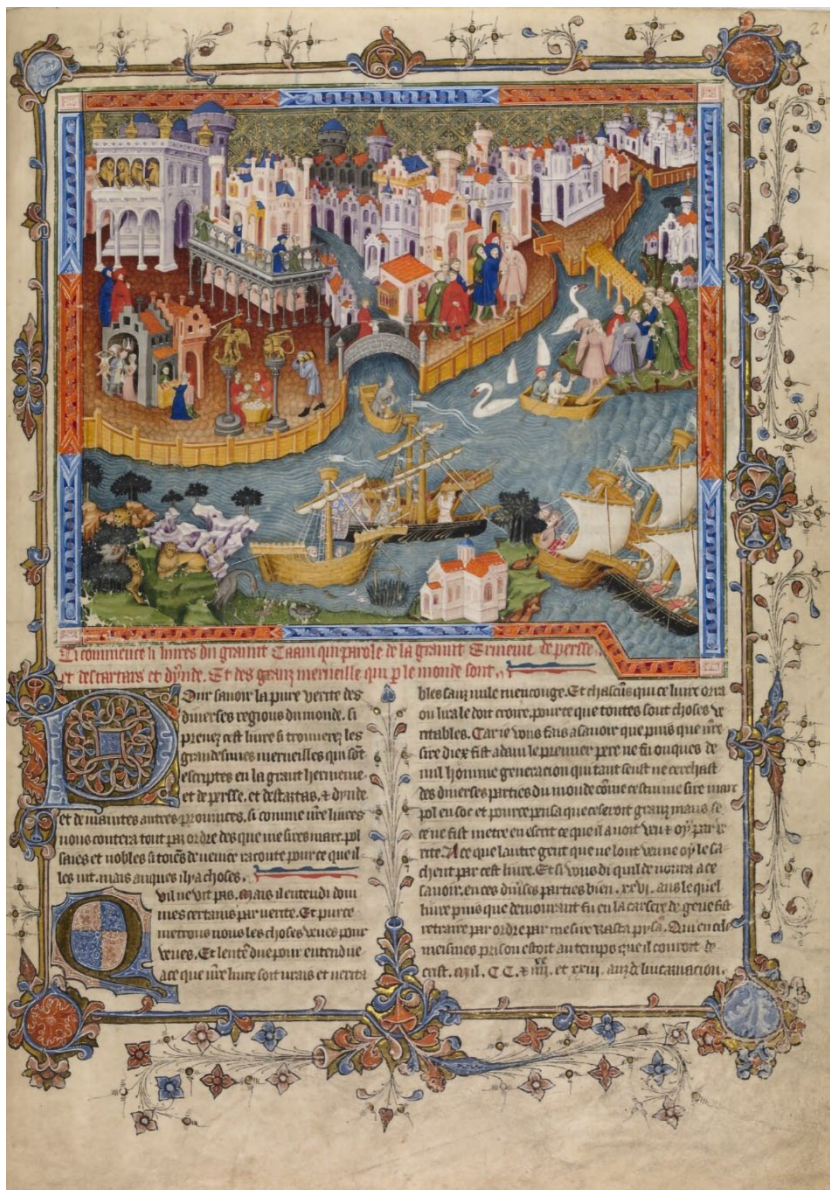 Ci commence li liures du graunt Caam qui parole de la graunt Ermenie de persse.
et des tartars et dynde. Et des granz merueille qui p le monde sont.
Pour sauoir la pure verite des
diuerses regions du monde. si
prenez cest liure si trouuerez les
grandesmes merueilles qui sont
escriptes en la grant hermenie
et de persse. et des tartas. & dynde
et de maintes autres prouinces. si comme nre liures
nous contera tout par ordre des que me sires marc pol
saies et nobles citoies de uenice raconte pour ce que il
les uit. mais auques il y a choses.
Quil ne vit pas. Mais il entendi dou
mes certains par uerite. Et purce
metrons nous les choses veues pour
veues. Et lentedue pour entendue
ace que nre liure soit urais et uerita
bles sanz nule mencouge. Et chascuns qui ce liure orra
ou lira le doit croire. pour ce que toutes sont choses ve
ritables. Car ie vous fais a sauoir que puis que nre
sire diex fist adam le premier pere ne fu onques de
nul homme generacion qui tant seust ne cerchast
des diuerses parties du monde come cestui me sire marc
pol en sot et pource pensa que ce seroit granz maus se
ce ne fust metre en escrit ce que il auoit veu & oy par ve
rite. A ce que lautre gent que ne lont veu ne oy le sa
chent par cest liure. Et si vous di quil demora a ce
sauoir. en ces diuses parties bien. xxvi. ans le quel
liure puis que demourant fu en la carsere de geue fist
retraire par ordre par mesire Rasta pysa. Qui en cele
meismes prison estoit au temps que il couroit de
crist. Mil. C C. & iiii. et xxiii. anz de lincarnacion.